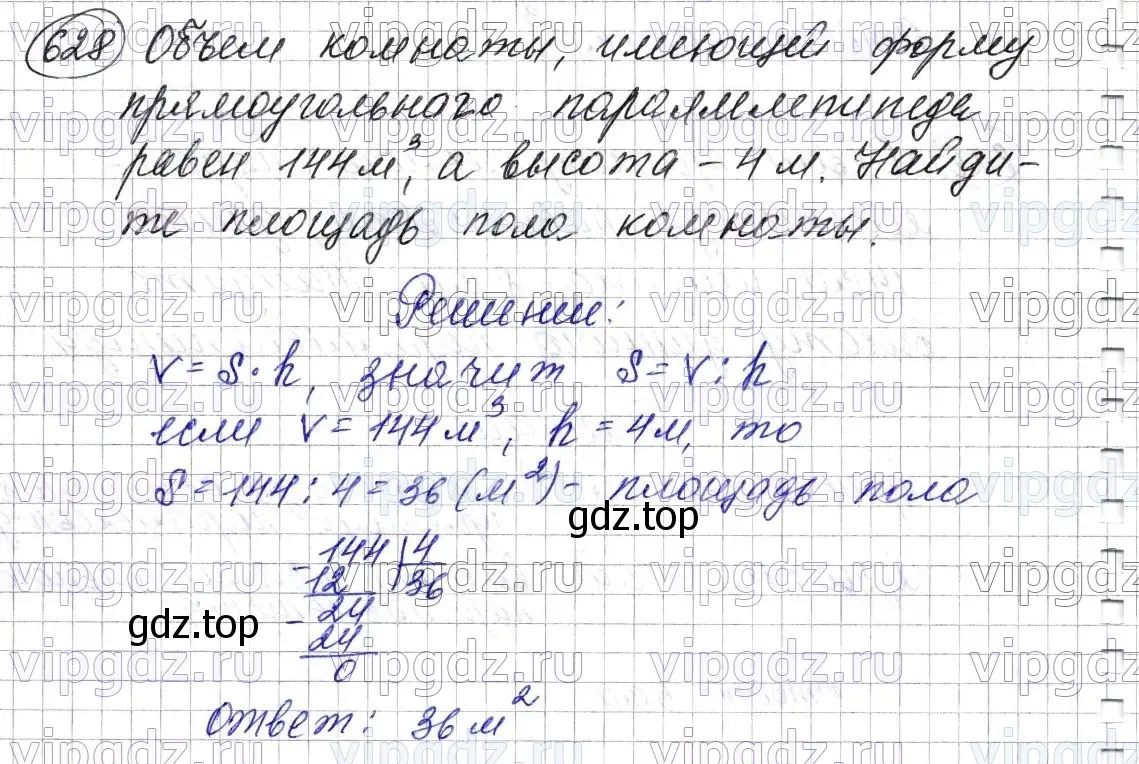 628 Объем комнаты, имеющий форму
прямоугольного параллелепипеда
равен 144 м³, а высота – 4 м. Найди-
те площадь пола комнаты.
Решение:
V = S · h, значит S = V : h
если V = 144 м³, h = 4 м, то
S = 144 : 4 = 36 (м²) – площадь пола
gdz.top
– 144 | 4
12 36
– 24
gdz.top
24
0
Ответ: 36 м²
vipgdz.ru